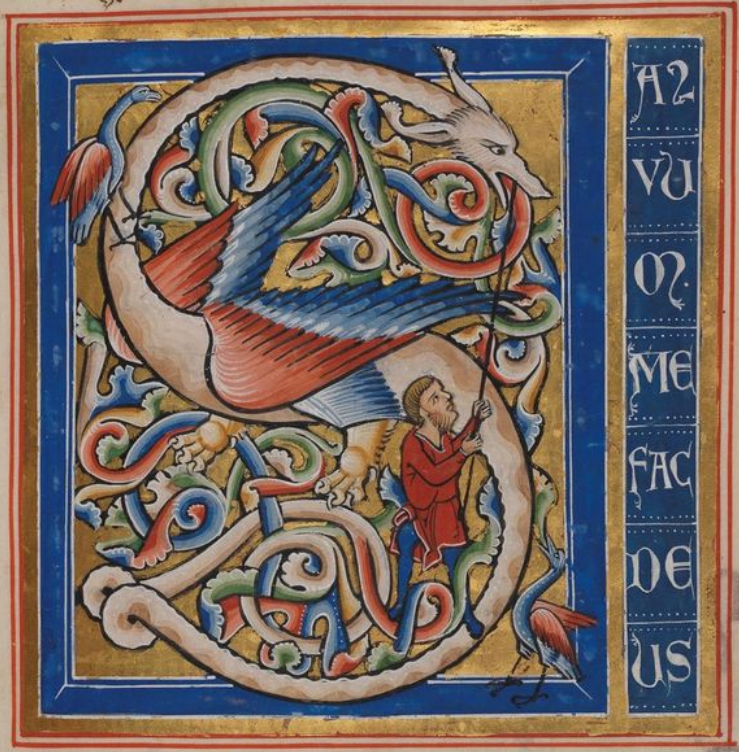 S
AL
VU
M.
ME
FAC
DE
US